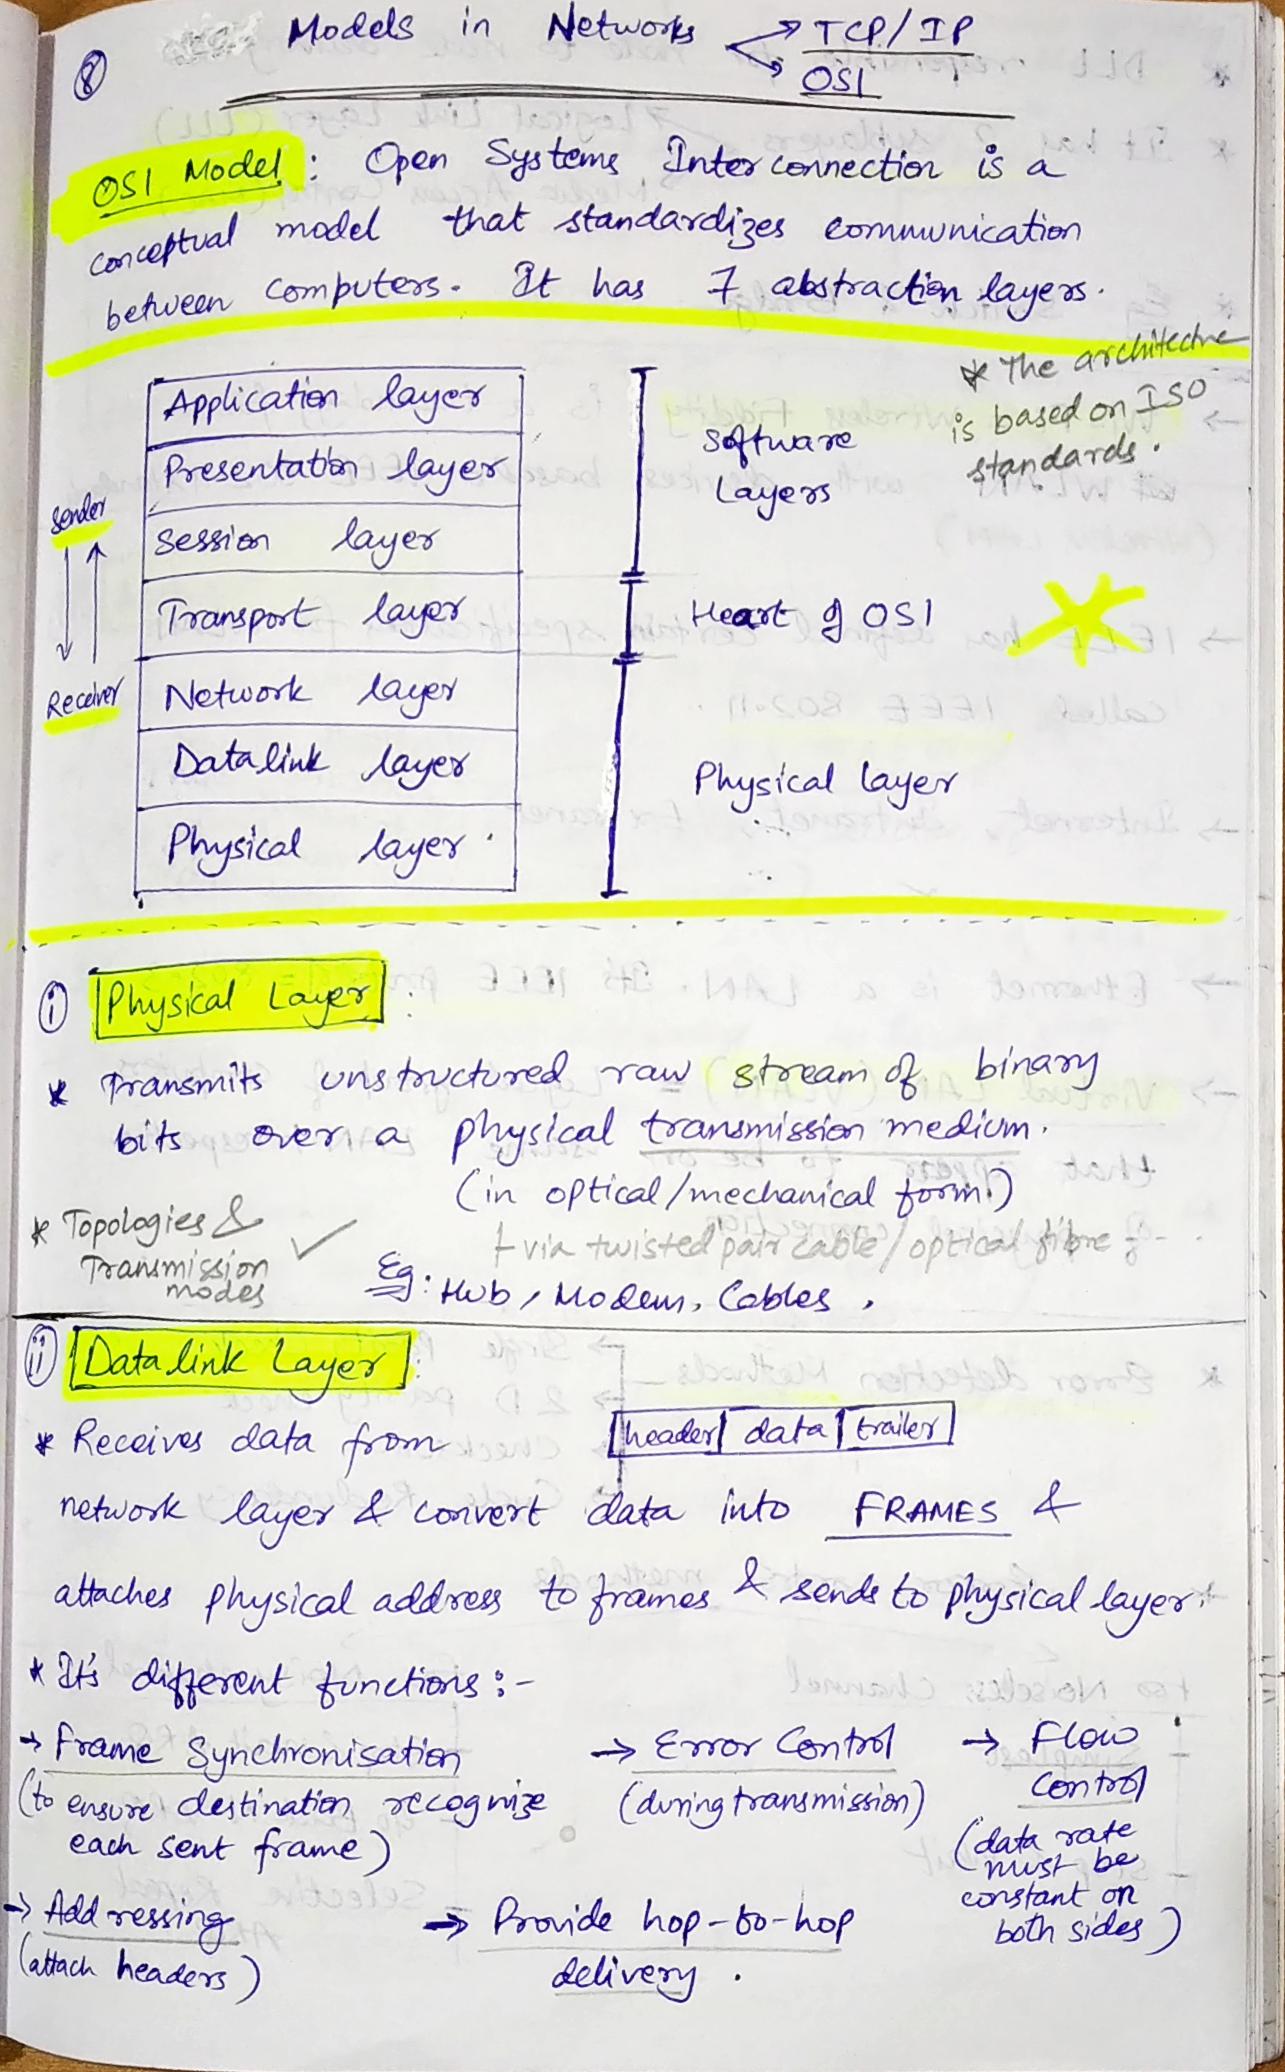 8
Models in Networks → TCP/IP
→ OSI
OSI Model : Open Systems Interconnection is a
conceptual model that standardizes communication
between computers. It has 7 abstraction layers.
* The architecture
is based on ISO
standards.
Application layer
Presentation layer
Session layer
Software
Layers
Sender
Receiver
Transport layer
Heart of OSI
Network layer
Datalink layer
Physical layer
Physical layer
i Physical Layer :
* Transmits unstructured raw stream of binary
bits over a physical transmission medium.
(in optical/mechanical form)
via twisted pair cable/optical fibre
* Topologies &
Transmission
modes
Eg: Hub, Modem, Cables.
ii Datalink Layer :
header | data | trailer
* Receives data from
network layer & convert data into FRAMES &
attaches physical address to frames & sends to physical layer.
* It's different functions :-
→ Frame Synchronisation
(to ensure destination recognize
each sent frame)
→ Error Control
(during transmission)
→ Flow
Control
(data rate
must be
constant on
both sides)
→ Addressing
(attach headers)
→ Provide hop-to-hop
delivery.